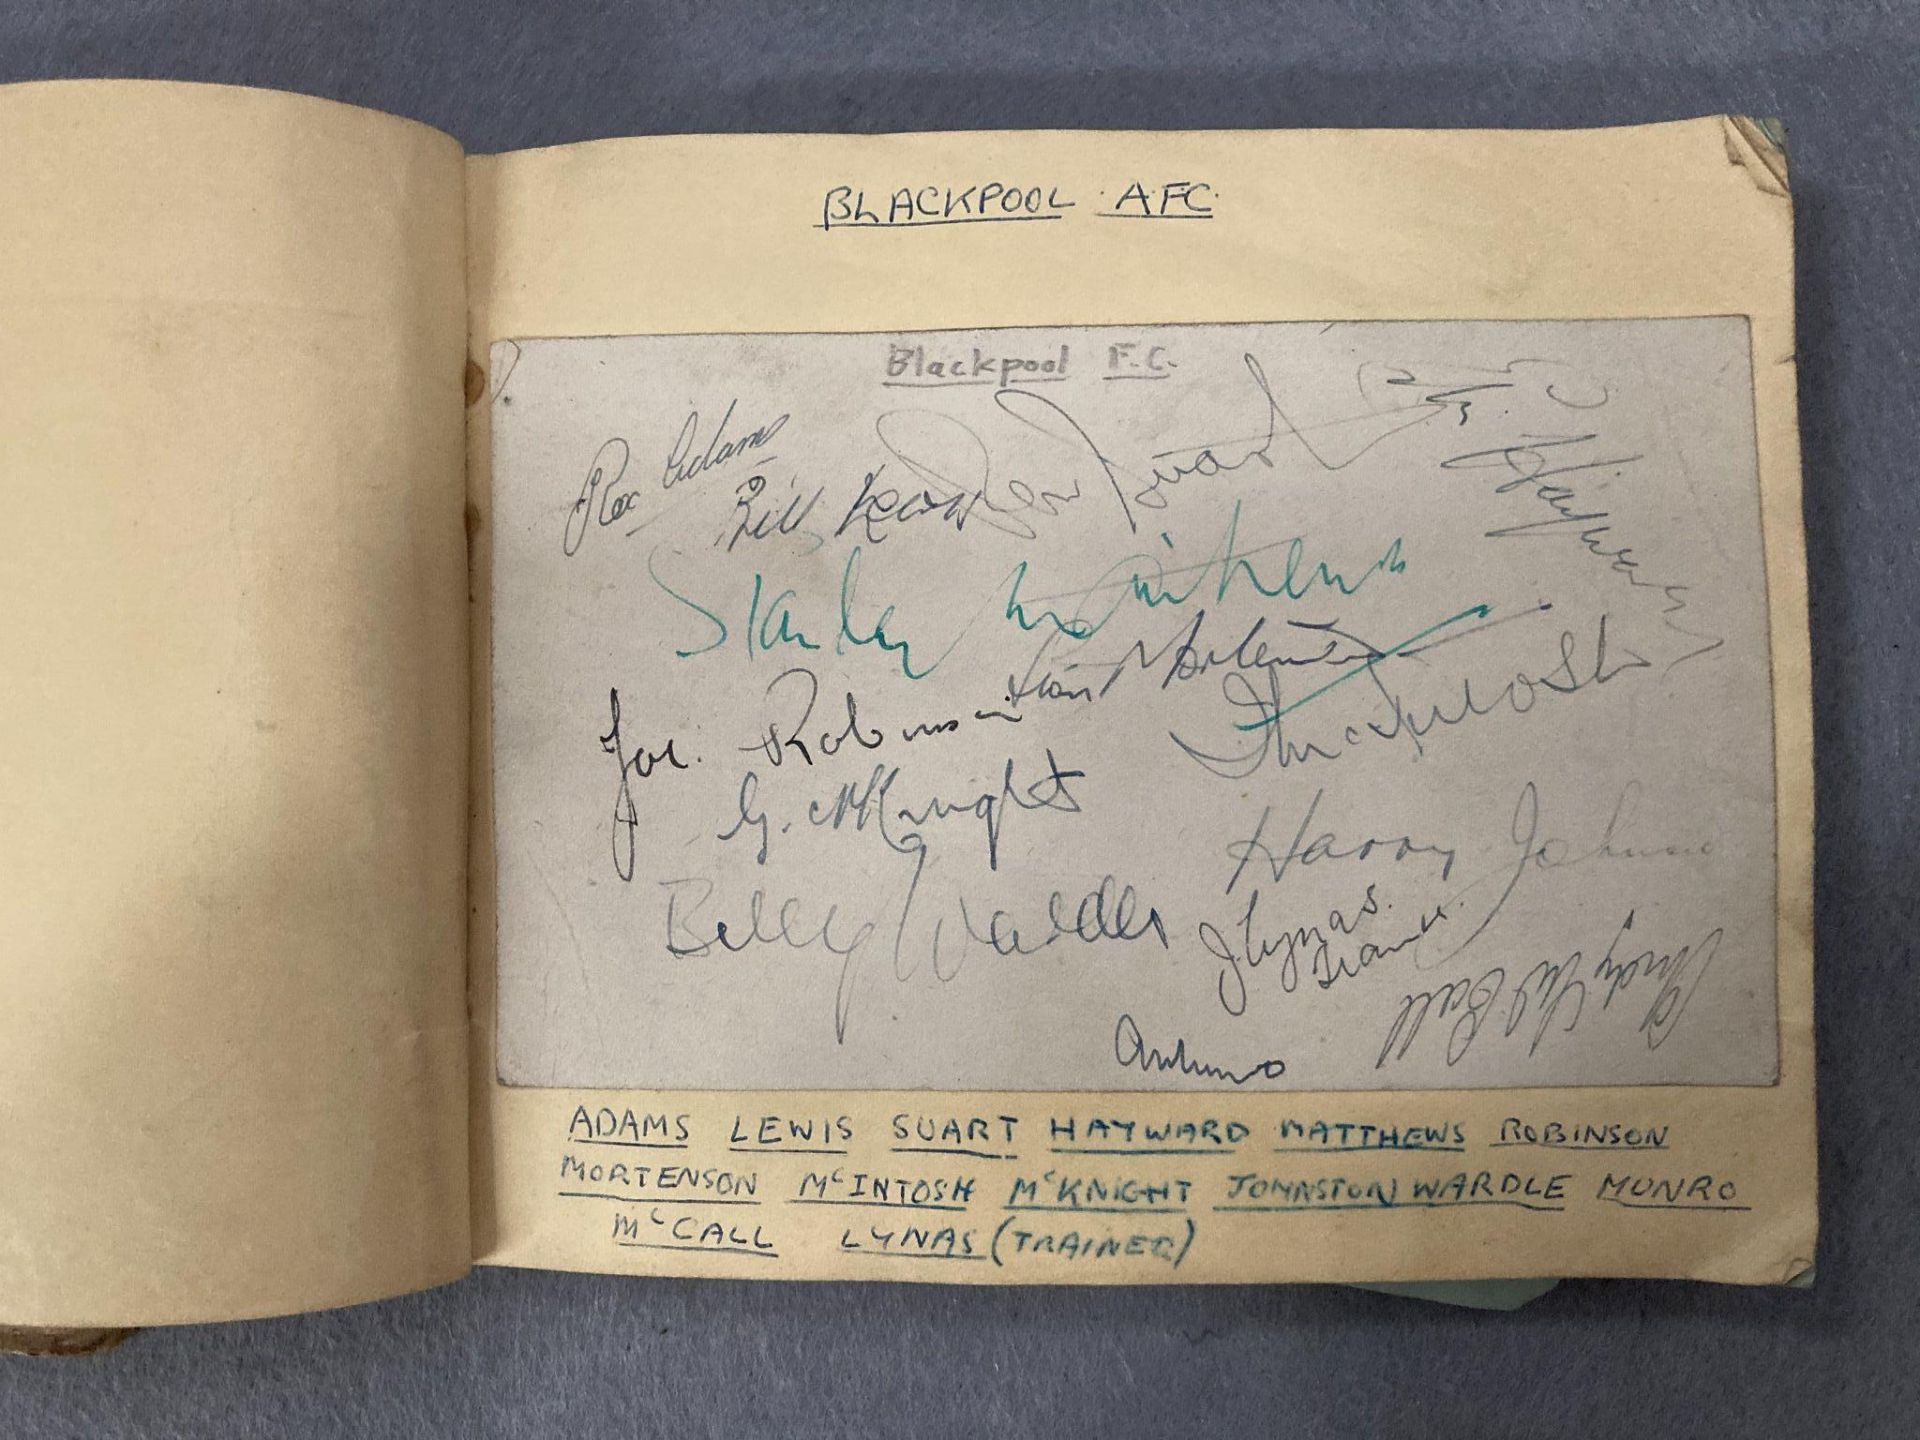 BLACKPOOL A.F.C.
Blackpool F.C.
Rex Adams
Bill Lewis
Ron Suart
Hayward
Stanley Matthews
Stan Mortensen
Joe. Robinson
McIntosh
G. McKnight
Harry Johnston
Billy Wardle
J Lynas.
Trainer.
Andy McCall
ADAMS LEWIS SUART HAYWARD MATTHEWS ROBINSON
MORTENSON McINTOSH McKNIGHT JOHNSTON WARDLE MUNRO
McCALL LYNAS (TRAINER)